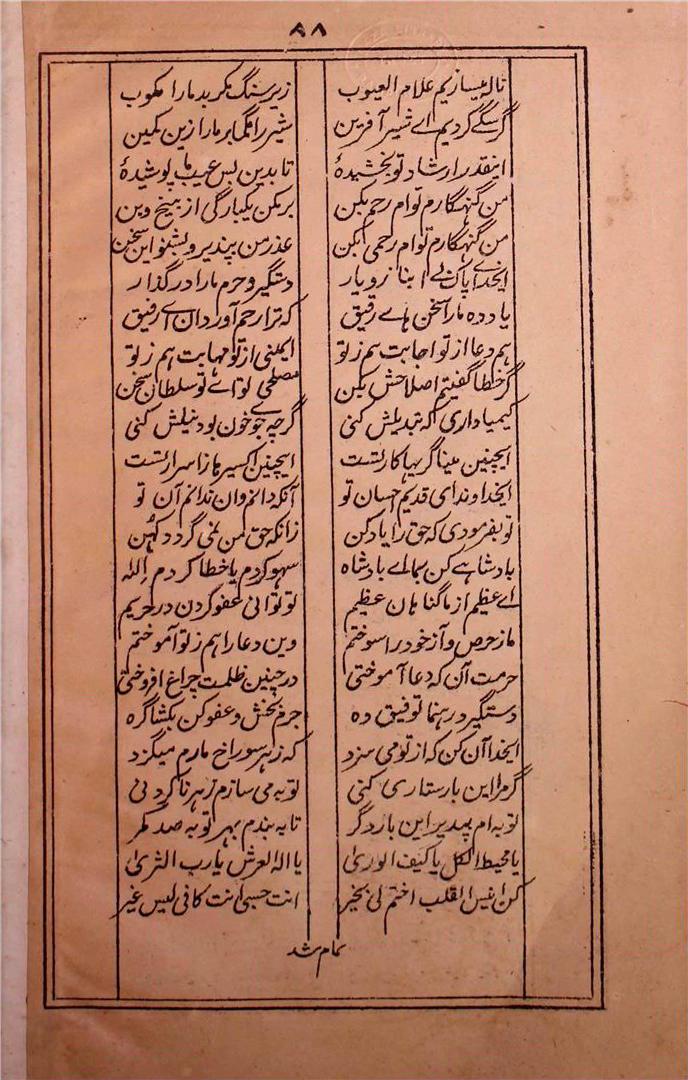 ٩٨
ناله میسازیم علام العیوب زیر سنگ مکر بد ما را مکوب
گر سگے گردیم اے شیر آفرین شیر را مگمار بر ما زین کمین
اینقدر ارشاد تو بخشیدهٔ تا بدین بس عیب ما پوشیدهٔ
من گنهگارم توام رحم بکن برکن یکبارگی از بیخ و بن
من گنهگارم توام رحمی بکن عذر من بپذیر و بشنو این سخن
ایخداے پاک بے انباز و یار دستگیر و جرم ما را در گذار
یاد ده ما را سخن هاے رقیق که ترا رحم آورد ان اے رفیق
هم دعا از تو اجابت هم ز تو ایمنی از تو مهابت هم ز تو
گر خطا گفتیم اصلاحش بکن مصلحی تو اے تو سلطان سخن
کیمیا داری که تبدیلش کنی گرچه جوے خون بود نیلش کنی
اینچنین میناگریها کار تست اینچنین اکسیرها ز اسرار تست
ایخداوند ای قدیم احسان تو آنکه دانم وان ندانم آن تو
تو بفرمودی که حق را یاد کن زانکه حق من نمی گردد کهن
بادشاهے کن بما اے بادشاه سهو کردم یا خطا کردم اله
اے عظیم از ما گناهان عظیم تو توانی عفو کردن در حریم
ما ز حرص و آز خود را سوختم وین دعا را هم ز تو آموختم
حرمت آن که دعا آموختی در چنین ظلمت چراغ افروختی
دستگیر و رهنما توفیق ده جرم بخش و عفو کن بکشا گره
ایخدا آن کن که از تو می سزد که ز هر سوراخ مارم میگزد
گر مرا این بار ستاری کنی توبه می سازم ز هر ناکردنی
توبه ام بپذیر این بار دگر تا به بندم بهر توبه صد کمر
یا محیط الکل یا کنف الوریٰ یا اله العرش یا رب الثریٰ
کن انیس القلب اختم لی بخیر انت حسبی انت کافی لیس غیر
تمام شد